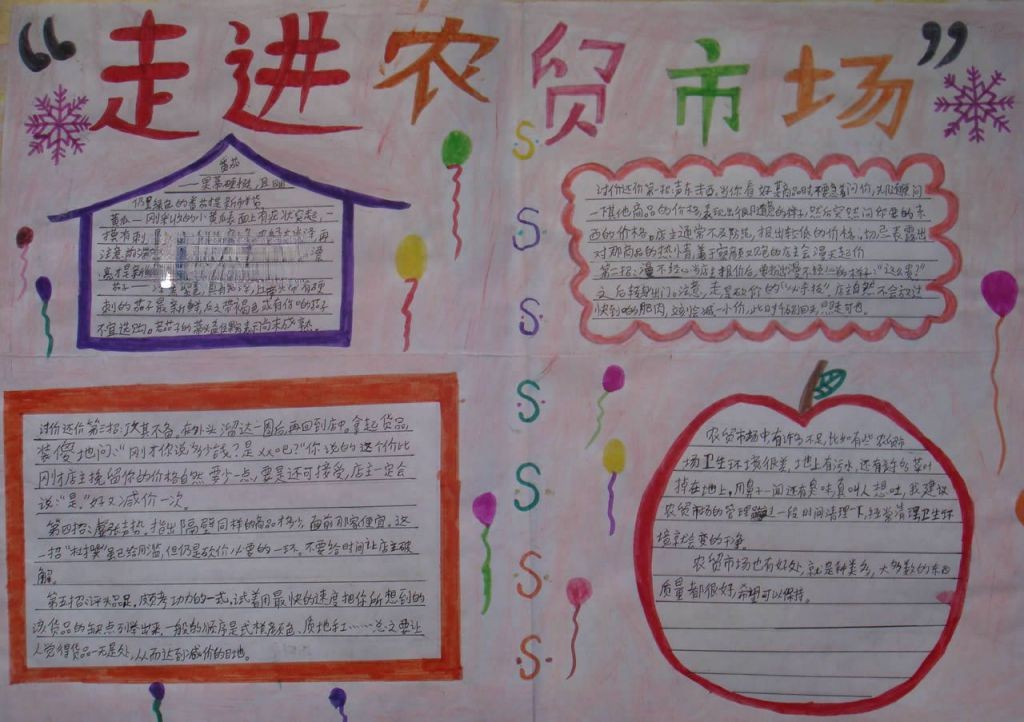 “走进农贸市场”
番茄
——果蒂硬挺，且四
仍呈绿色的番茄是新鲜的
黄瓜—刚采收的小黄瓜表面上有疣状突起，一
摸有刺
注意
刺的茄子最新鲜，反之带褐色或有伤的茄子
不宜选购。若茄子的蒂盖住顶端表示尚未成熟。
讨价还价第一招：声东击西。当你看好某商品时不要急着问价，先随便问
一下其他商品的价格，表现出很随意的样子，然后突然问你要的东
西的价格。店主通常不及防范，报出较低的价格。切忌表露出
对那商品的热情，善于察颜观色的店主会漫天起价
第二招：漫不经心。当店主报价后，要扮出漫不经心的样子：“这么贵？”
之后转身出门。注意，走是砍价的“必杀技”。店主自然不会放过
快到嘴的肥肉，立刻会减一小价，此时千万别回头
S
S
S
S
S
S
S
讨价还价第三招：攻其不备。在外头溜达一圈后，再回到店中。拿起货品，
装傻地问：“刚才你说多少钱？是xx吧？”你说的这个价比
刚才店主挽留你的价格自然要少一点，要是还可接受，店主一定会
说：“是”。好，又减价一次。
第四招：虚张声势。指出隔壁同样的商品才多少，面前那家便宜。这
一招“杜撰”虽已给用滥，但仍是砍价必要的一环，不要给时间让店主破
解。
第五招：评头品足。颇考功力的一式，试着用最快的速度把你所想到的
该货品的缺点列举出来。一般的顺序是式样、颜色、质地、手工……总之要让
人觉得货品一无是处，从而达到减价的目地。
农贸市场中有许多不足，比如有些农贸市
场卫生环境很差，地上有污水，还有许多菜叶
掉在地上。用鼻子一闻还有臭味，真叫人想吐，我建议
农贸市场的管理一段时间清理一下，经常清理卫生环
境就会变的干净。
农贸市场也有好处，就是种类多，大多数的东西
质量都很好，希望可以保持。